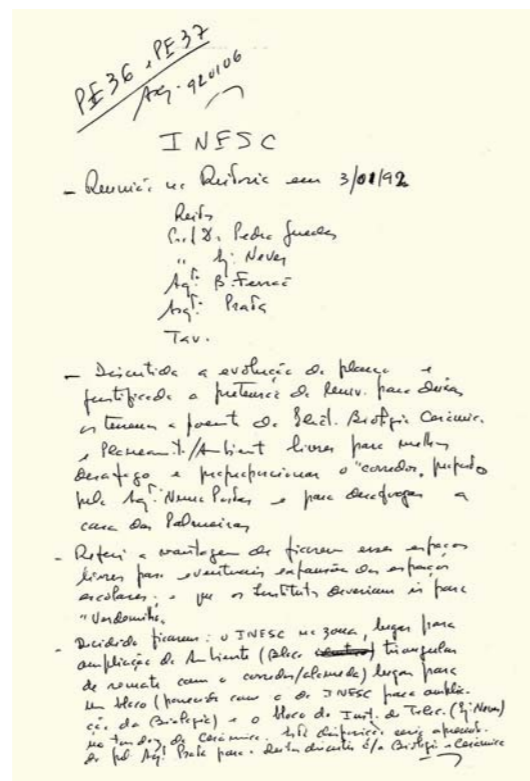 PE36, PE37
Arq. 920106
INESC
- Reunião na Reitoria em 3/01/92
Reitor
Prof. Dr. Pedro Guedes
" Eng. Neves
Arqº. B. Ferrão
Arqº. Prata
Tav.
- Discutida a evolução do plano e
justificada a pretensão da Reniv. para deixar
os terrenos a poente de Biologia Cerâmica
e Planeamt./Ambient livres para melhor
desafogo e proporcionar o "corredor proposto
pelo Arqº. Nuno Portas e para desafogar a
casa das Palmeiras
- Referi a vantagem de ficarem esses espaços
livres para eventuais expansão dos espaços
escolares; e que os Institutos deveriam ir para
"Verdemilho.
- Decidido ficarem: o INESC na zona, lugar para
ampliação do Ambiente (Bloco triangular
de remate com o corredor/alameda) lugar para
um bloco (parecido com o do INESC para amplia-
ção da Biologia) e o bloco do Inst. de Telec. (Eng. Neves)
na tardoz da Cerâmica. Esta disposição seria apresent.
do pelo Arqº. Prata para Biologia e Cerâmica